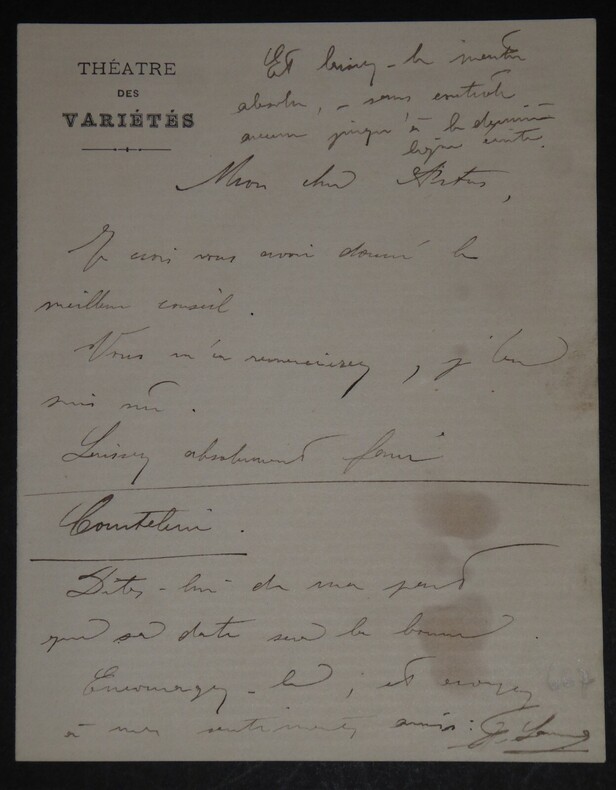 THÉATRE
DES
VARIÉTÉS
Et laissez-le mettre
absolu, - sans contrôle
aucun jusqu'à la dernière
ligne écrite.
Mon cher Artus,
Je crois vous avoir donné le
meilleur conseil.
Vous m'en remercierez, j'en
suis sûr.
Laissez absolument faire
Courteline.
Dites-lui de ma part
que sa date sera la bonne.
Encouragez-le ; et croyez
à mes sentiments amis :